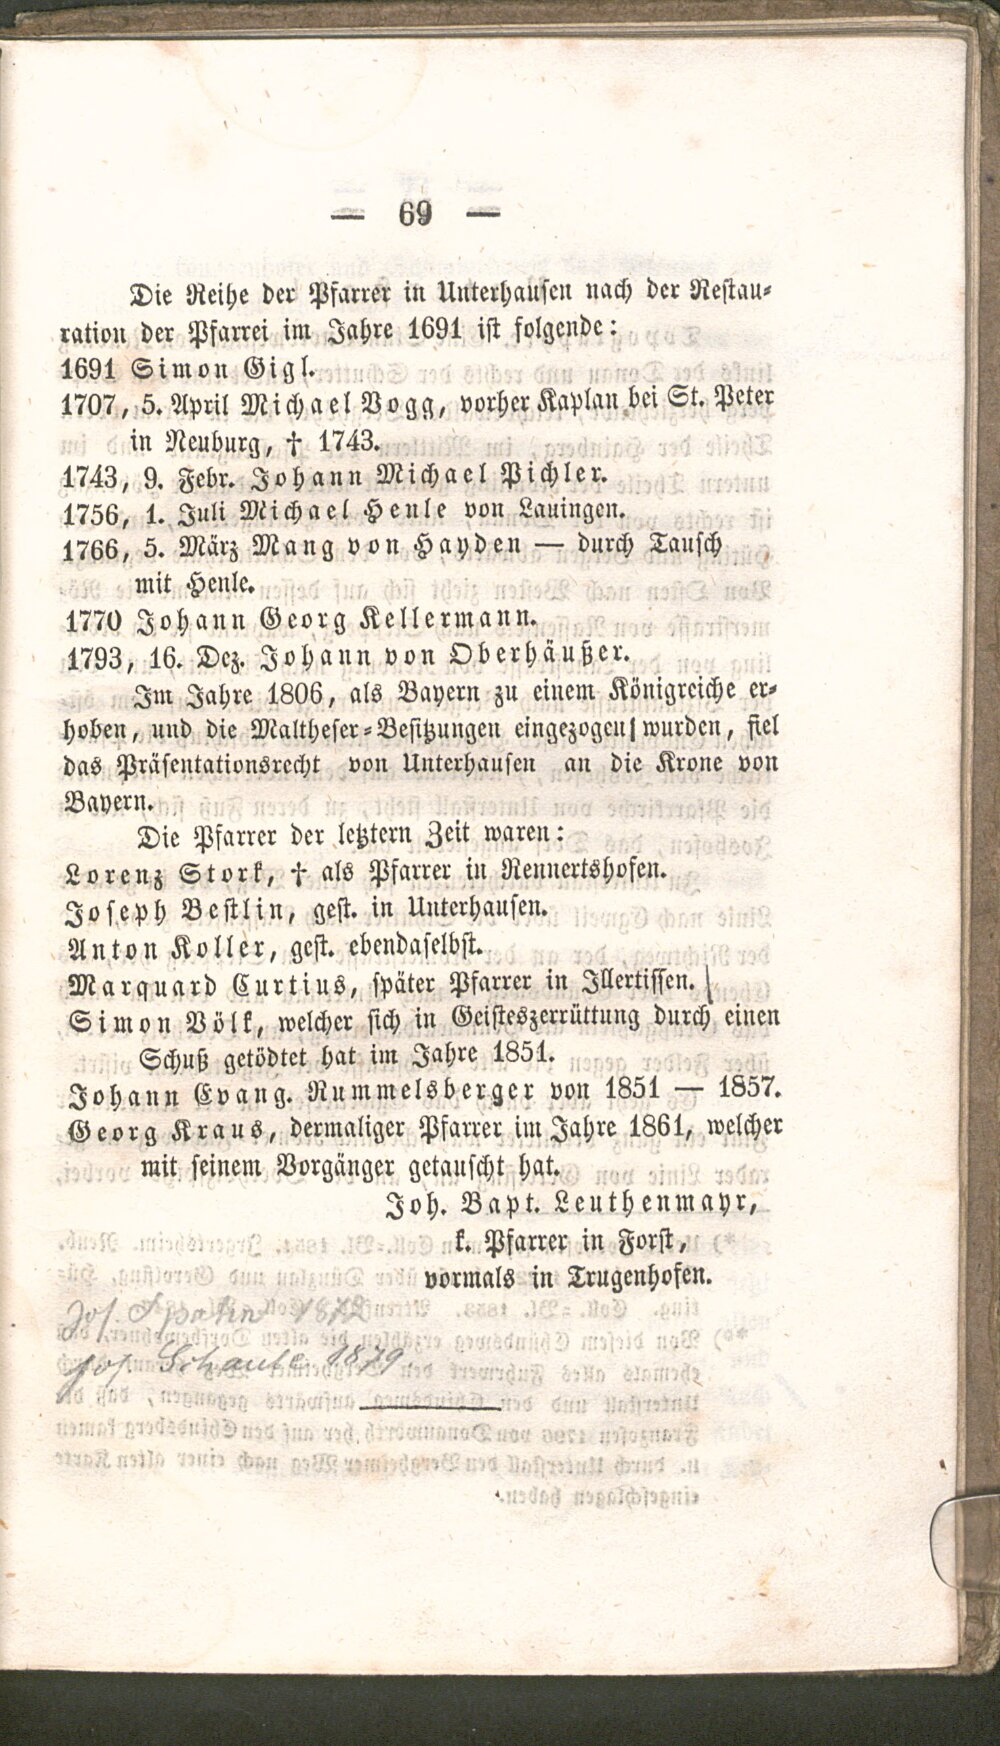 — 69 —
Die Reihe der Pfarrer in Unterhausen nach der Restau-
ration der Pfarrei im Jahre 1691 ist folgende:
1691 Simon Gigl.
1707, 5. April Michael Vogg, vorher Kaplan bei St. Peter
in Neuburg, † 1743.
1743, 9. Febr. Johann Michael Pichler.
1756, 1. Juli Michael Henle von Lauingen.
1766, 5. März Mang von Hayden — durch Tausch
mit Henle.
1770 Johann Georg Kellermann.
1793, 16. Dez. Johann von Oberhäußer.
Im Jahre 1806, als Bayern zu einem Königreiche er-
hoben, und die Maltheser-Besitzungen eingezogen wurden, fiel
das Präsentationsrecht von Unterhausen an die Krone von
Bayern.
Die Pfarrer der letztern Zeit waren:
Lorenz Stork, † als Pfarrer in Rennertshofen.
Joseph Bestlin, gest. in Unterhausen.
Anton Koller, gest. ebendaselbst.
Marquard Curtius, später Pfarrer in Illertissen.
Simon Völk, welcher sich in Geisteszerrüttung durch einen
Schuß getödtet hat im Jahre 1851.
Johann Evang. Rummelsberger von 1851 — 1857.
Georg Kraus, dermaliger Pfarrer im Jahre 1861, welcher
mit seinem Vorgänger getauscht hat.
Joh. Bapt. Leuthenmayr,
k. Pfarrer in Forst,
vormals in Trugenhofen.
Jos. 1872
Jos. Schaule 1879